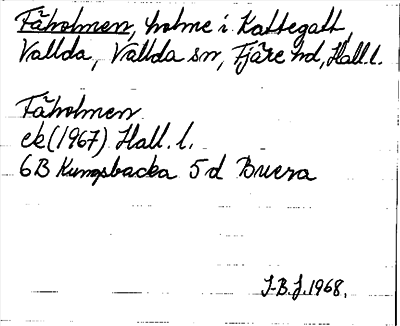 Fåholmen, holme i Kattegatt,
Vallda, Vallda sn, Fjäre hd, Hall. l.
Fåholmen
ek (1967) Hall. l.
6B Kungsbacka 5d Buera
J-B.J. 1968.